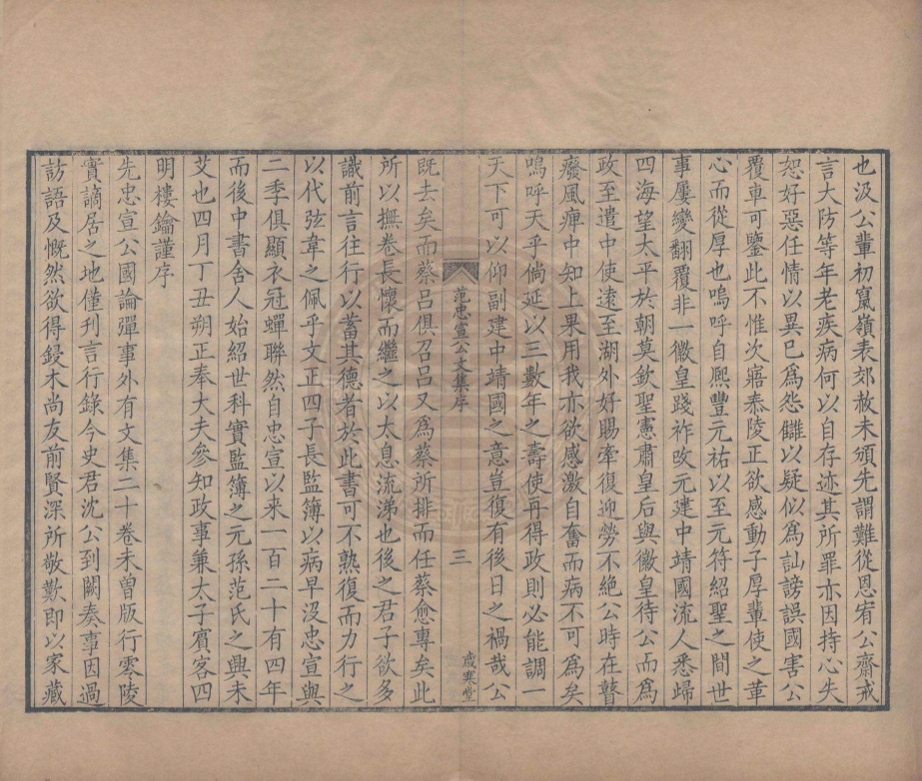 也汲公輩初竄嶺表郊赦未頒先謂難從恩宥公齋戒
言大防等年老疾病何以自存迹其所罪亦因持心失
恕好惡任情以異已爲怨讎以疑似爲訕謗誤國害公
覆車可鑒此不惟次寤泰陵正欲感動子厚輩使之革
心而從厚也嗚呼自熙豐元祐以至元符紹聖之間世
事屢變翻覆非一徽皇踐祚攺元建中靖國流人悉歸
四海望太平於朝莫欽聖憲肅皇后與徽皇待公而爲
政至遣中使遠至湖外好賜牽復迎勞不絶公時在瞽
癈風痺中知上果用我亦欲感激自奮而病不可爲矣
嗚呼天乎倘延以三數年之壽使再得政則必能調一
天下可以仰副建中靖國之意豈復有後日之禍哉公
范忠宣公文集序
三
歲寒堂
既去矣而蔡呂俱召呂又爲蔡所排而任蔡愈專矣此
所以撫卷長懷而繼之以太息流涕也後之君子欲多
識前言往行以蓄其德者於此書可不熟復而力行之
以代弦韋之佩乎文正四子長監簿以病早沒忠宣與
二季俱顯衣冠蟬聯然自忠宣以来一百二十有四年
而後中書舍人始紹世科實監簿之元孫范氏之興未
艾也四月丁丑朔正奉大夫參知政事兼太子賓客四
明樓鑰謹序
先忠宣公國論彈事外有文集二十卷未曾版行零陵
實謫居之地僅刊言行錄今史君沈公到闕奏事因過
訪語及慨然欲得鋟木尚友前賢深所敬歎即以家藏